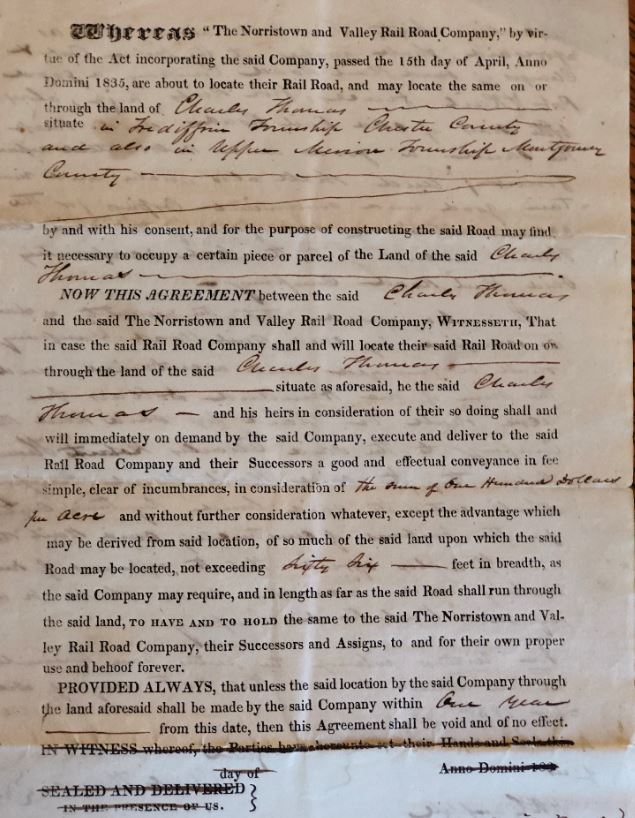 Whereas "The Norristown and Valley Rail Road Company," by vir-
tue of the Act incorporating the said Company, passed the 15th day of April, Anno
Domini 1835, are about to locate their Rail Road, and may locate the same on or
through the land of Charles Thomas
situate in Trediffrin Township Chester County
and also in Upper Merion Township Montgomery
County
by and with his consent, and for the purpose of constructing the said Road may find
it necessary to occupy a certain piece or parcel of the Land of the said Charles
Thomas
NOW THIS AGREEMENT between the said Charles Thomas
and the said The Norristown and Valley Rail Road Company, WITNESSETH, That
in case the said Rail Road Company shall and will locate their said Rail Road on or
through the land of the said Charles Thomas
situate as aforesaid, he the said Charles
Thomas — and his heirs in consideration of their so doing shall and
will immediately on demand by the said Company, execute and deliver to the said
Rail Road Company and their Successors a good and effectual conveyance in fee
simple, clear of incumbrances, in consideration of the sum of One Hundred Dollars
per Acre and without further consideration whatever, except the advantage which
may be derived from said location, of so much of the said land upon which the said
Road may be located, not exceeding sixty six — feet in breadth, as
the said Company may require, and in length as far as the said Road shall run through
the said land, TO HAVE AND TO HOLD the same to the said The Norristown and Val-
ley Rail Road Company, their Successors and Assigns, to and for their own proper
use and behoof forever.
PROVIDED ALWAYS, that unless the said location by the said Company through
the land aforesaid shall be made by the said Company within One year
from this date, then this Agreement shall be void and of no effect.
IN WITNESS whereof, the Parties have hereunto set their Hands and Seals this
day of Anno Domini 183
SEALED AND DELIVERED
IN THE PRESENCE OF US.